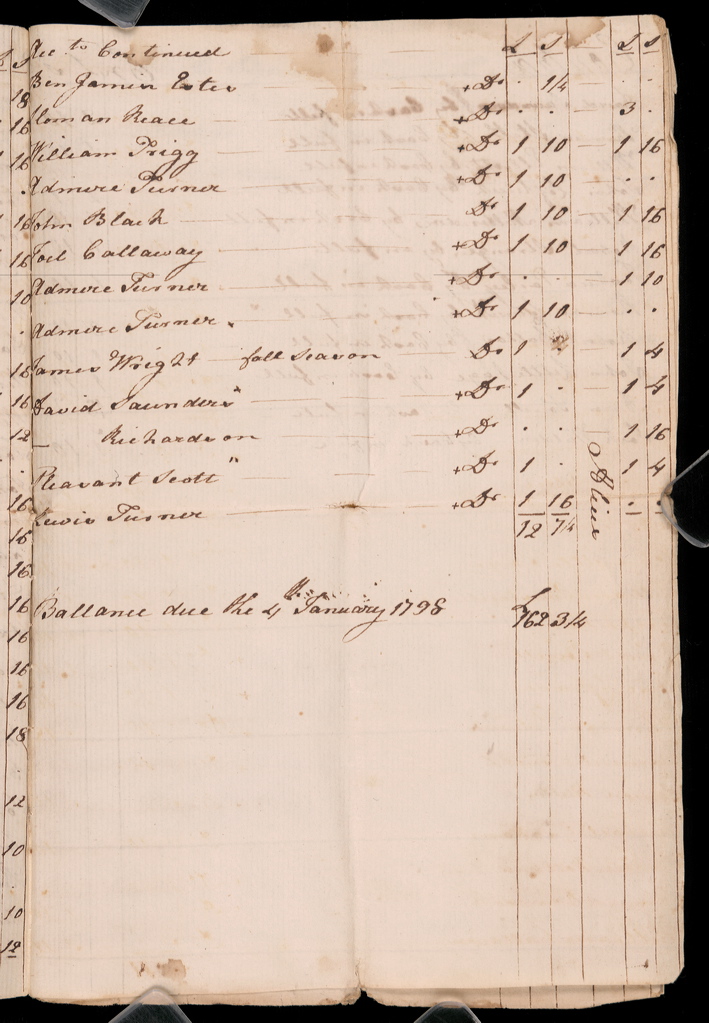 Acc ts Continued £ S £ S
Benjamen Estes +Dr . 1/4 . .
Sloman Reace +Dr . . 3 .
William Trigg +Dr 1 10 1 16
Admire Turner +Dr 1 10 . .
John Black Dr 1 10 1 16
Joel Callaway +Dr 1 10 1 16
Admire Turner +Dr . . 1 10
Admire Turner +Dr 1 10 . .
James Wright fall Season Dr 1 1 4
David Saunders " +Dr 1 . 1 4
— Richardson +Dr . . 1 16
Pleasant Scott " +Dr 1 . 1 4
Lewis Turner +Dr 1 16 . .
12 7/4
Ballance due the 4th January 1798 £ 162 3/4
18
16
16
.
16
16
10
.
16
16
12
.
16
16
16
16
16
16
16
18
12
10
10
12